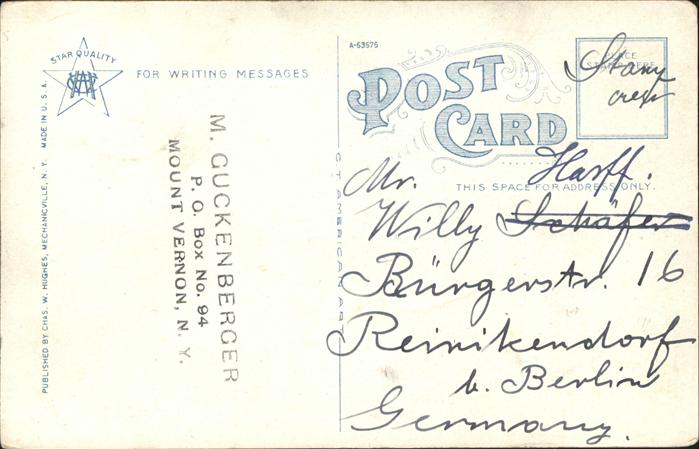 STAR QUALITY
FOR WRITING MESSAGES
PUBLISHED BY CHAS. W. HUGHES, MECHANICVILLE, N. Y. MADE IN U. S. A.
M. GUCKENBERGER
P. O. Box No. 94
MOUNT VERNON, N. Y.
C. T. AMERICAN ART
A-53575
POST
CARD
PLACE
STAMP HERE
THIS SPACE FOR ADDRESS ONLY.
Mr. Harff.
Willy Schäfer
Bürgerstr. 16
Reinikendorf
b. Berlin
Germany.